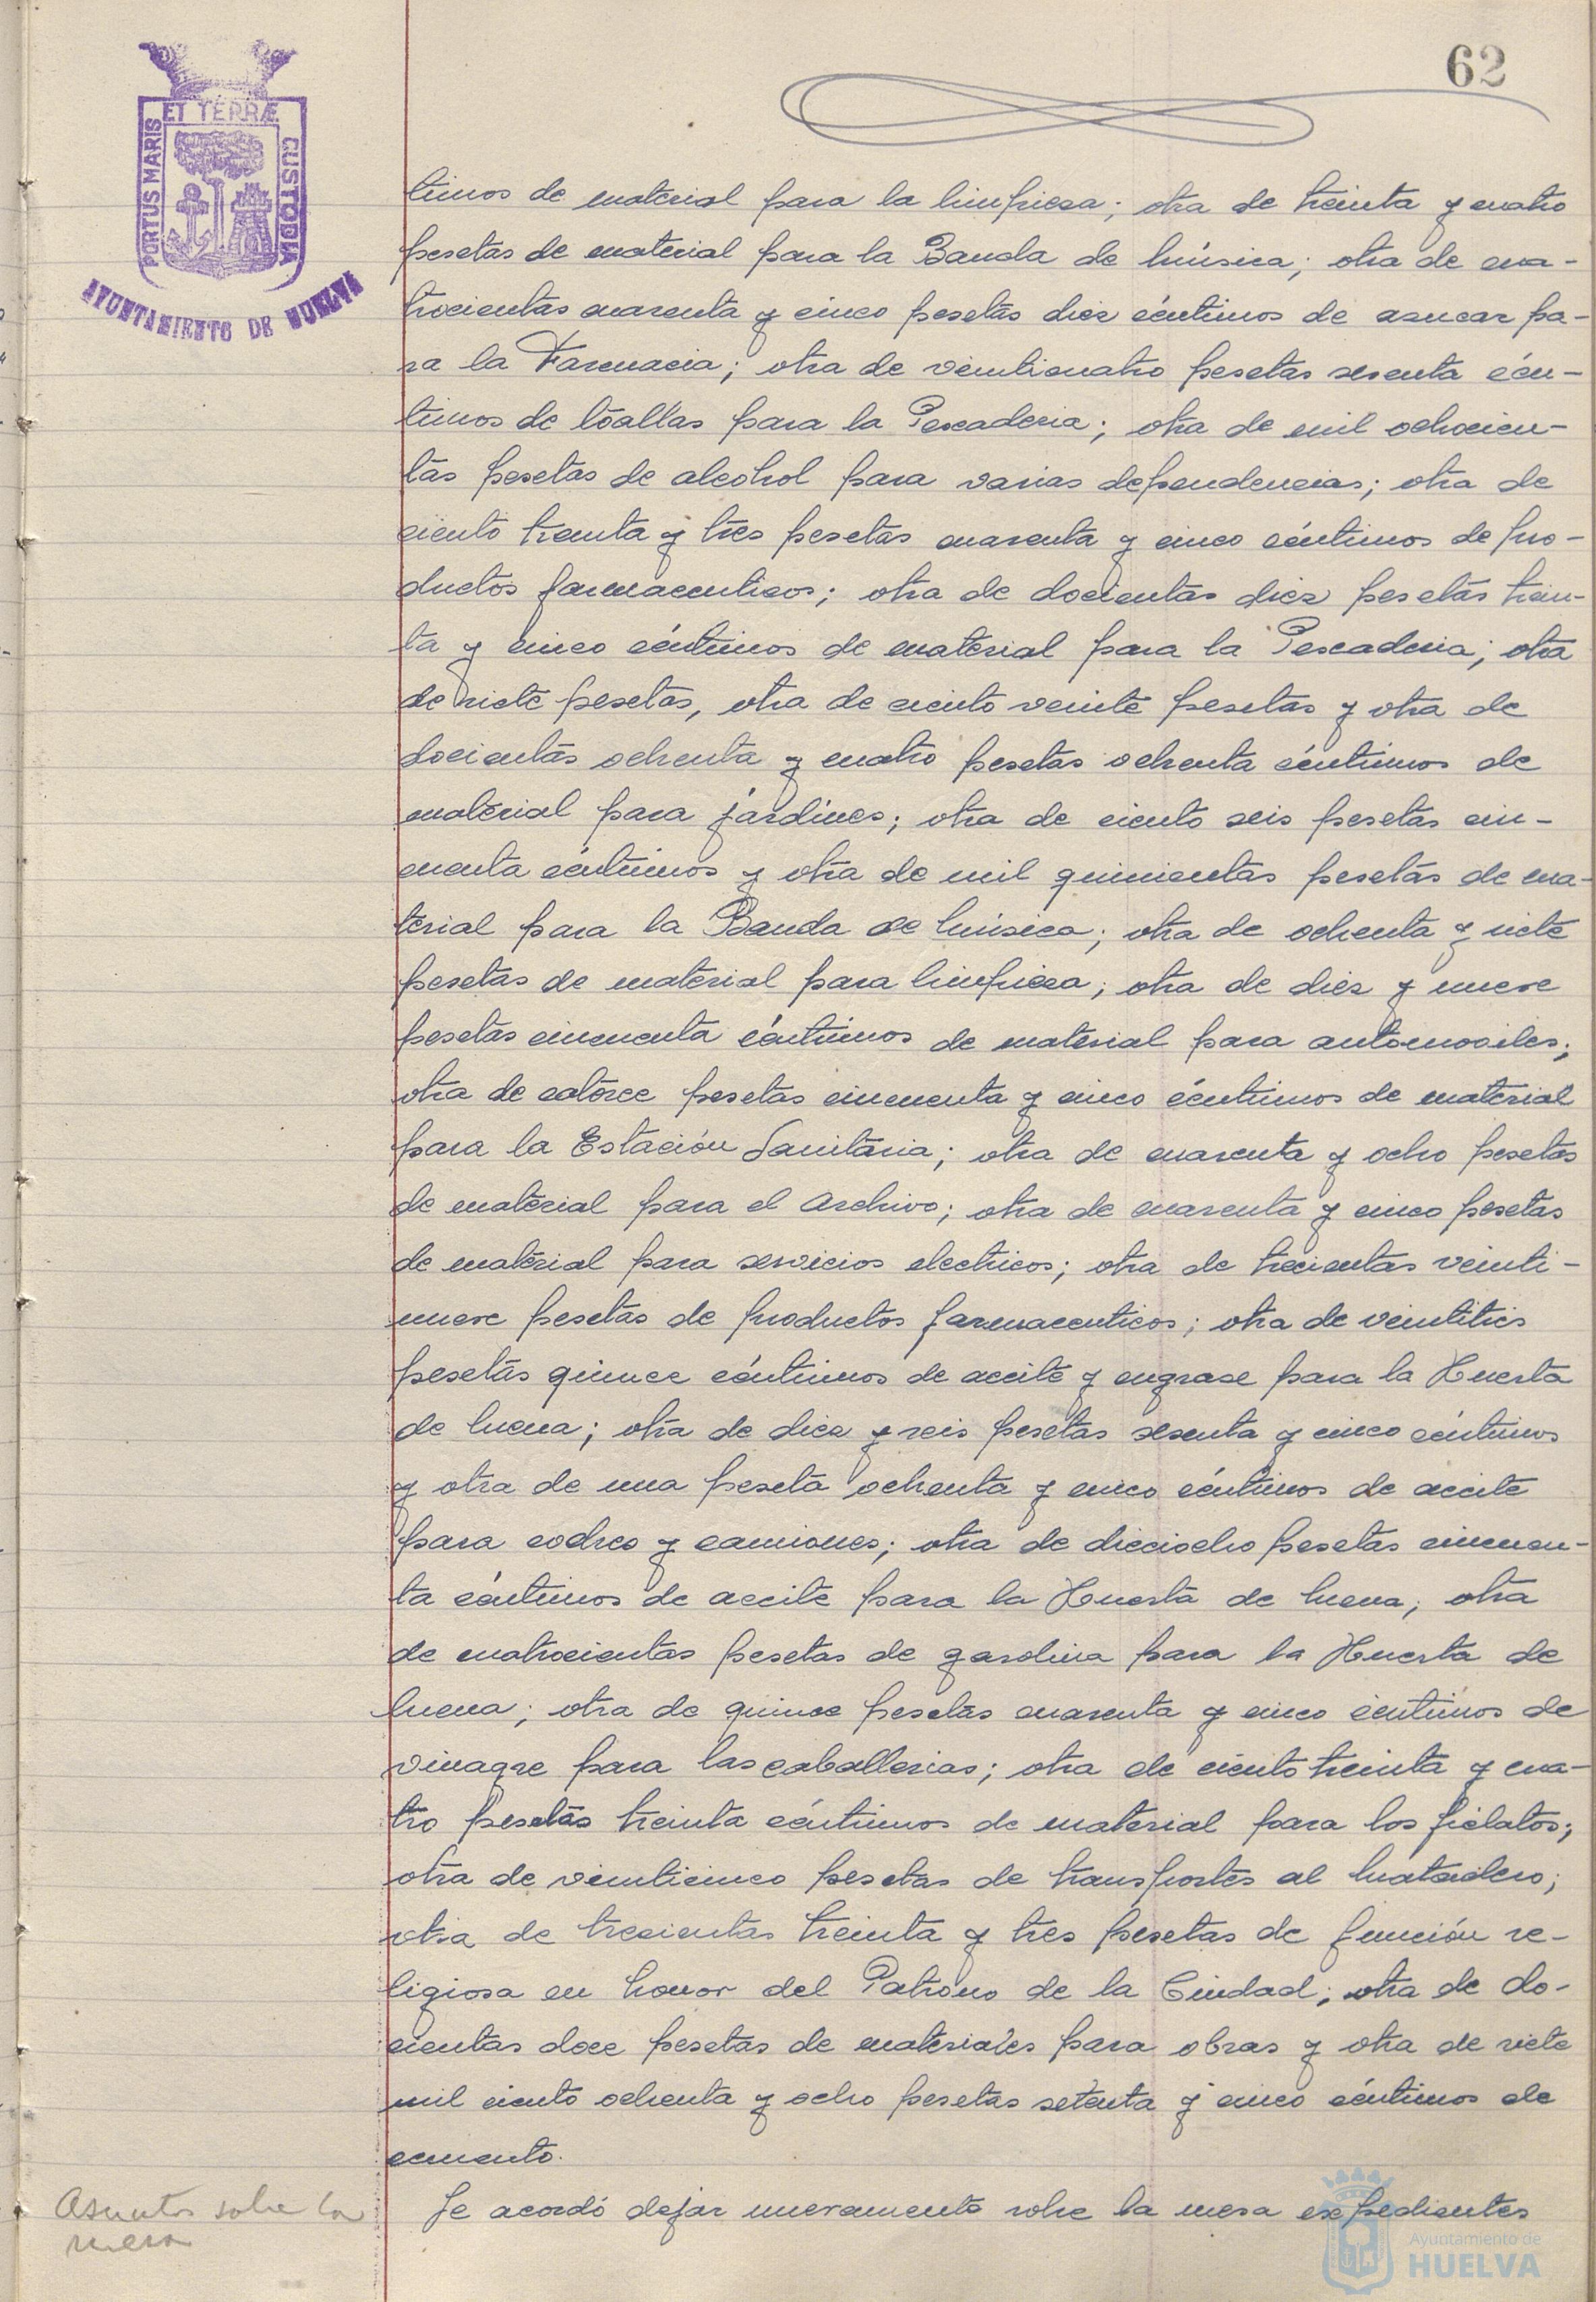 62
PORTUS MARIS ET TERRÆ CUSTODIA
AYUNTAMIENTO DE HUELVA
timos de material para la limpieza; otra de treinta y cuatro
pesetas de material para la Banda de música; otra de cua-
trocientas cuarenta y cinco pesetas diez céntimos de azucar pa-
ra la Farmacia; otra de veinticuatro pesetas sesenta cén-
timos de toallas para la Pescaderia; otra de mil ochocien-
tas pesetas de alcohol para varias dependencias; otra de
ciento treinta y tres pesetas cuarenta y cinco céntimos de pro-
ductos farmaceuticos; otra de docientas diez pesetas trein-
ta y cinco céntimos de material para la Pescaderia; otra
de siete pesetas, otra de ciento veinte pesetas y otra de
docientas ochenta y cuatro pesetas ochenta céntimos de
material para jardines; otra de ciento seis pesetas cin-
cuenta céntimos y otra de mil quinientas pesetas de ma-
terial para la Banda de música; otra de ochenta y siete
pesetas de material para limpieza; otra de diez y nueve
pesetas cincuenta céntimos de material para automoviles;
otra de catorce pesetas cincuenta y cinco céntimos de material
para la Estación Sanitaria; otra de cuarenta y ocho pesetas
de material para el Archivo; otra de cuarenta y cinco pesetas
de material para servicios electricos; otra de trecientas veinti-
nueve pesetas de productos farmaceuticos; otra de veintitres
pesetas quince céntimos de aceite y engrase para la Huerta
de Mena; otra de diez y seis pesetas sesenta y cinco céntimos
y otra de una peseta ochenta y cinco céntimos de aceite
para coches y camiones; otra de dieciocho pesetas cincuen-
ta céntimos de aceite para la Huerta de Mena; otra
de cuatrocientas pesetas de gasolina para la Huerta de
Mena; otra de quince pesetas cuarenta y cinco céntimos de
vinagre para las caballerias; otra de ciento treinta y cua-
tro pesetas treinta céntimos de material para los fielatos;
otra de veinticinco pesetas de transportes al Matadero;
otra de trecientas treinta y tres pesetas de función re-
ligiosa en honor del Patrono de la Ciudad; otra de do-
cientas doce pesetas de materiales para obras y otra de siete
mil ciento ochenta y ocho pesetas setenta y cinco céntimos de
cemento.
Asuntos sobre la
mesa
Se acordó dejar nuevamente sobre la mesa expedientes
Ayuntamiento de
HUELVA